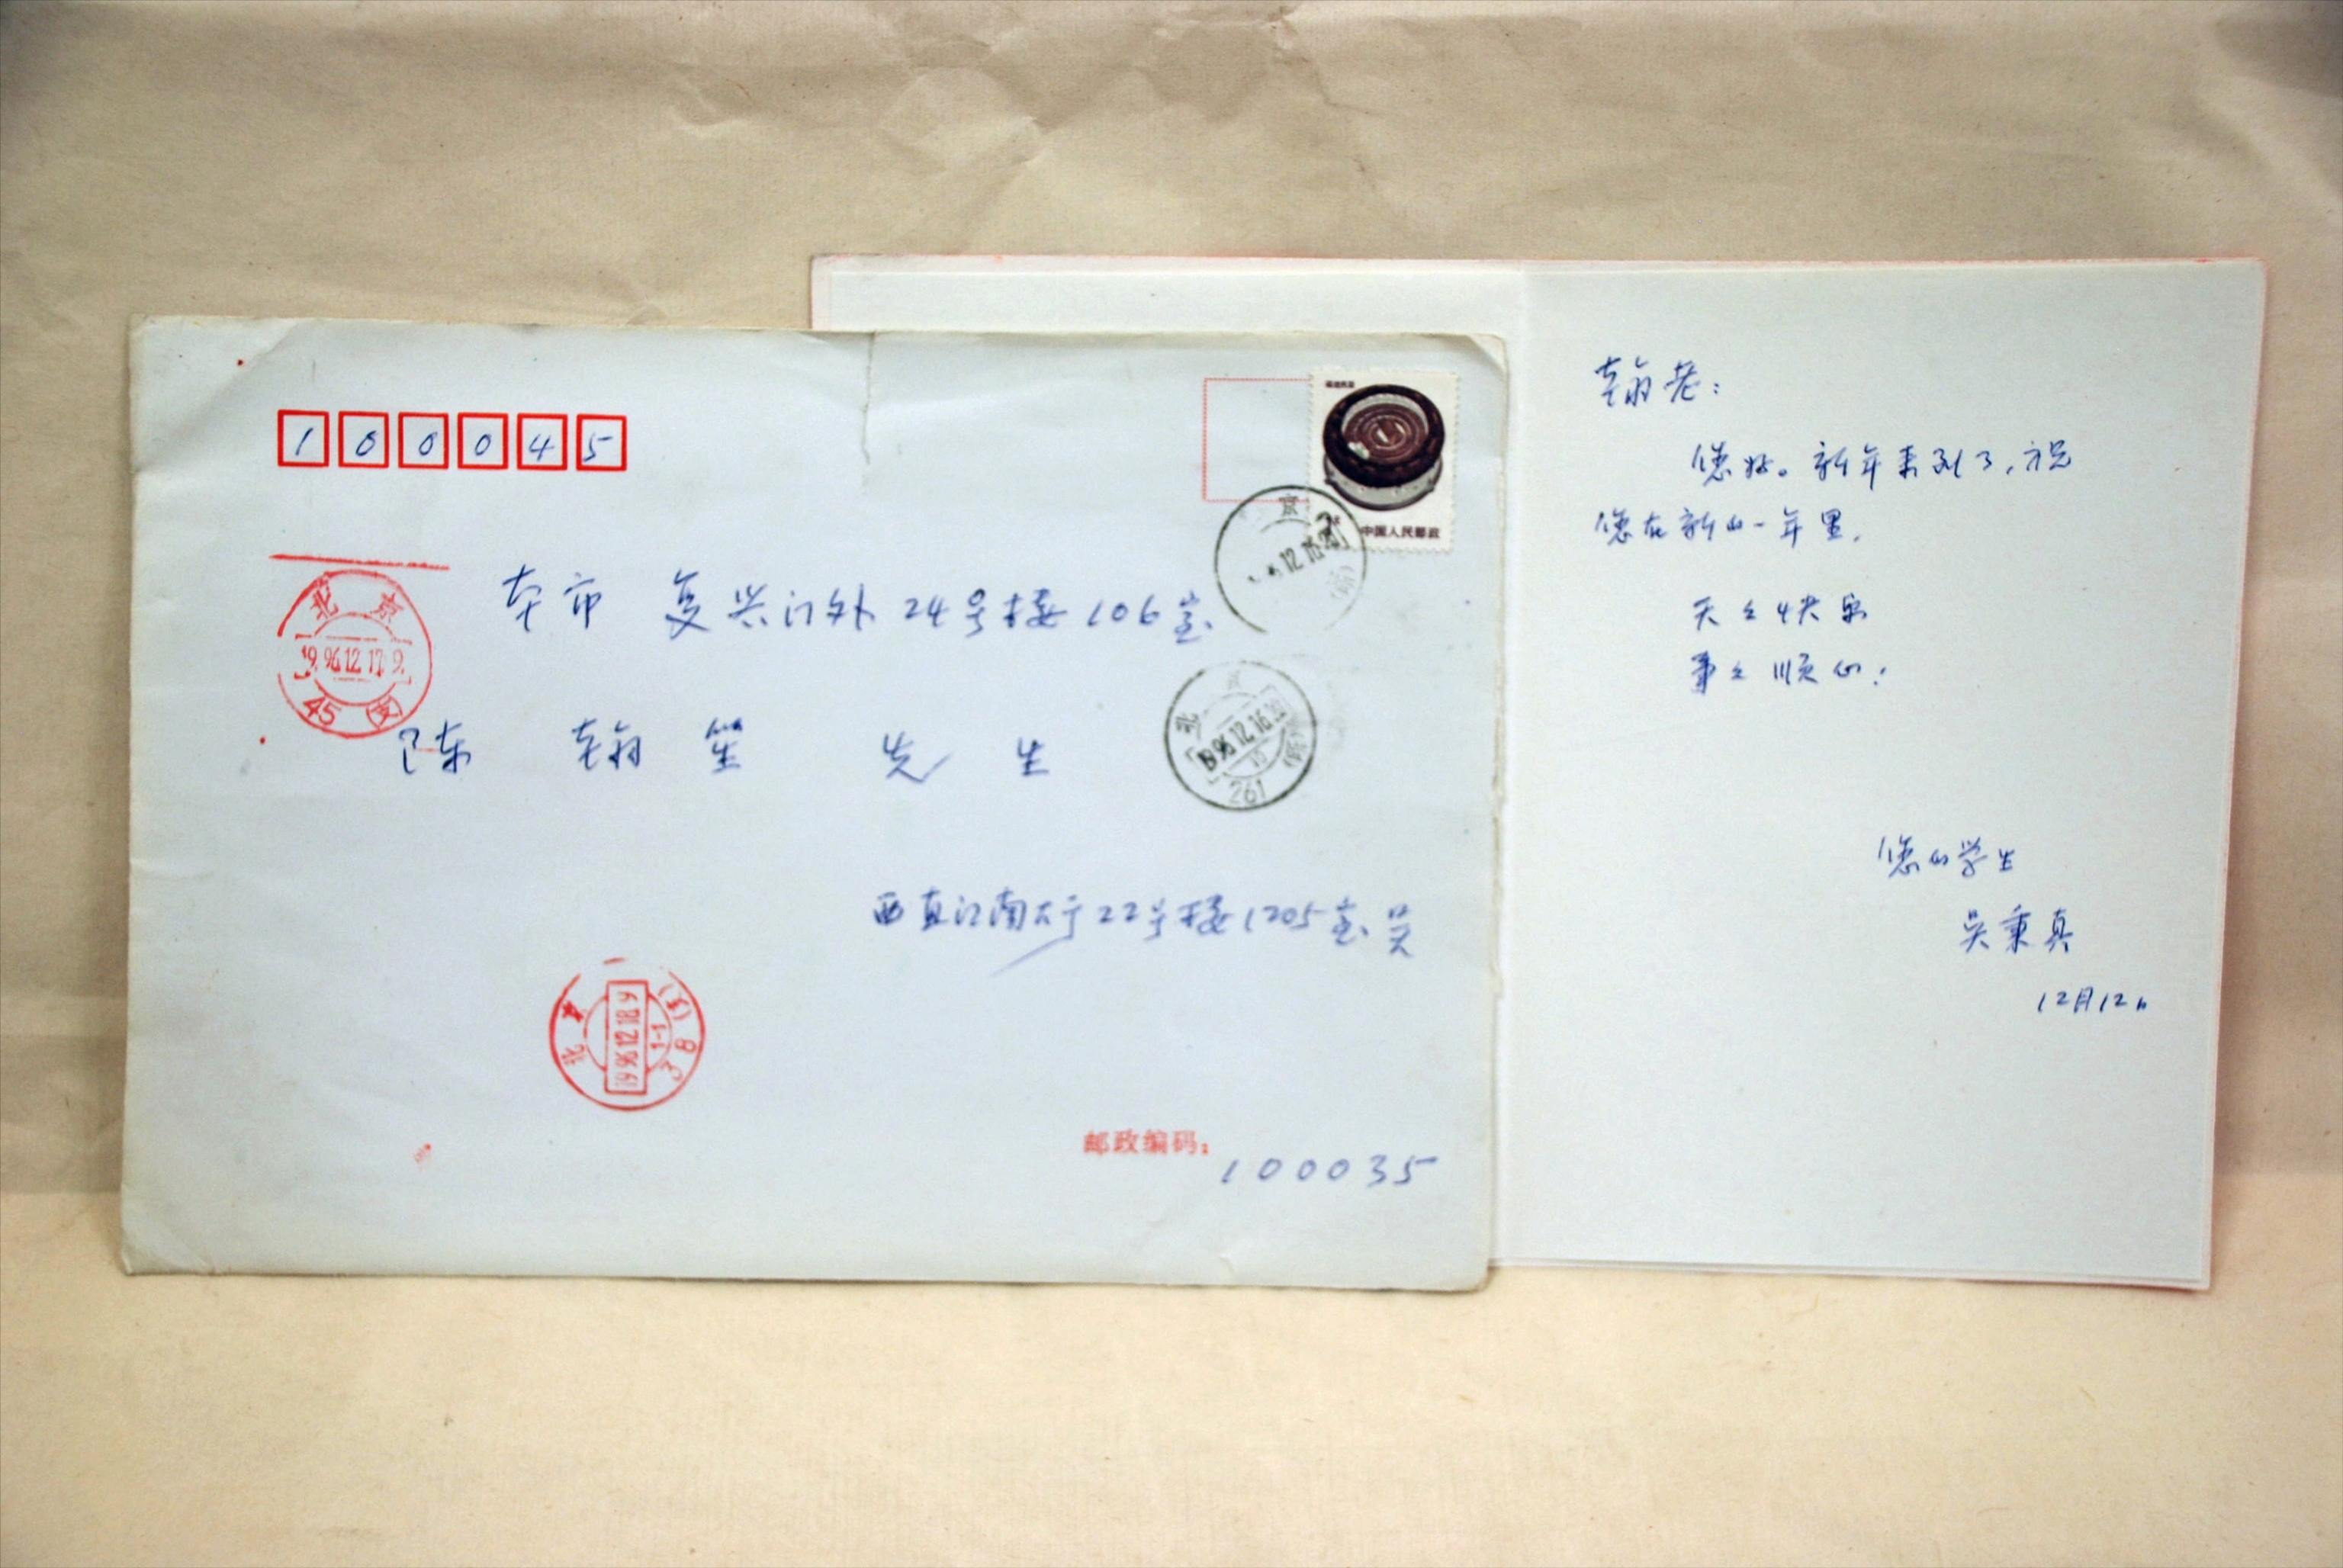 100045
福建民居
中国人民邮政
本市 复兴门外24号楼106室
北京
1996.12.17.9
45
陈 翰笙 先生
京
12.16
北京
1996.12.16.19
261
西直门南大街22号楼1205室 吴
北京
1996.12.18.9
1-1
38
邮政编码:
100035
翰老:
您好。新年来到了,祝
您在新的一年里,
天天快乐
事事顺心!
您的学生
吴秉真
12月12日